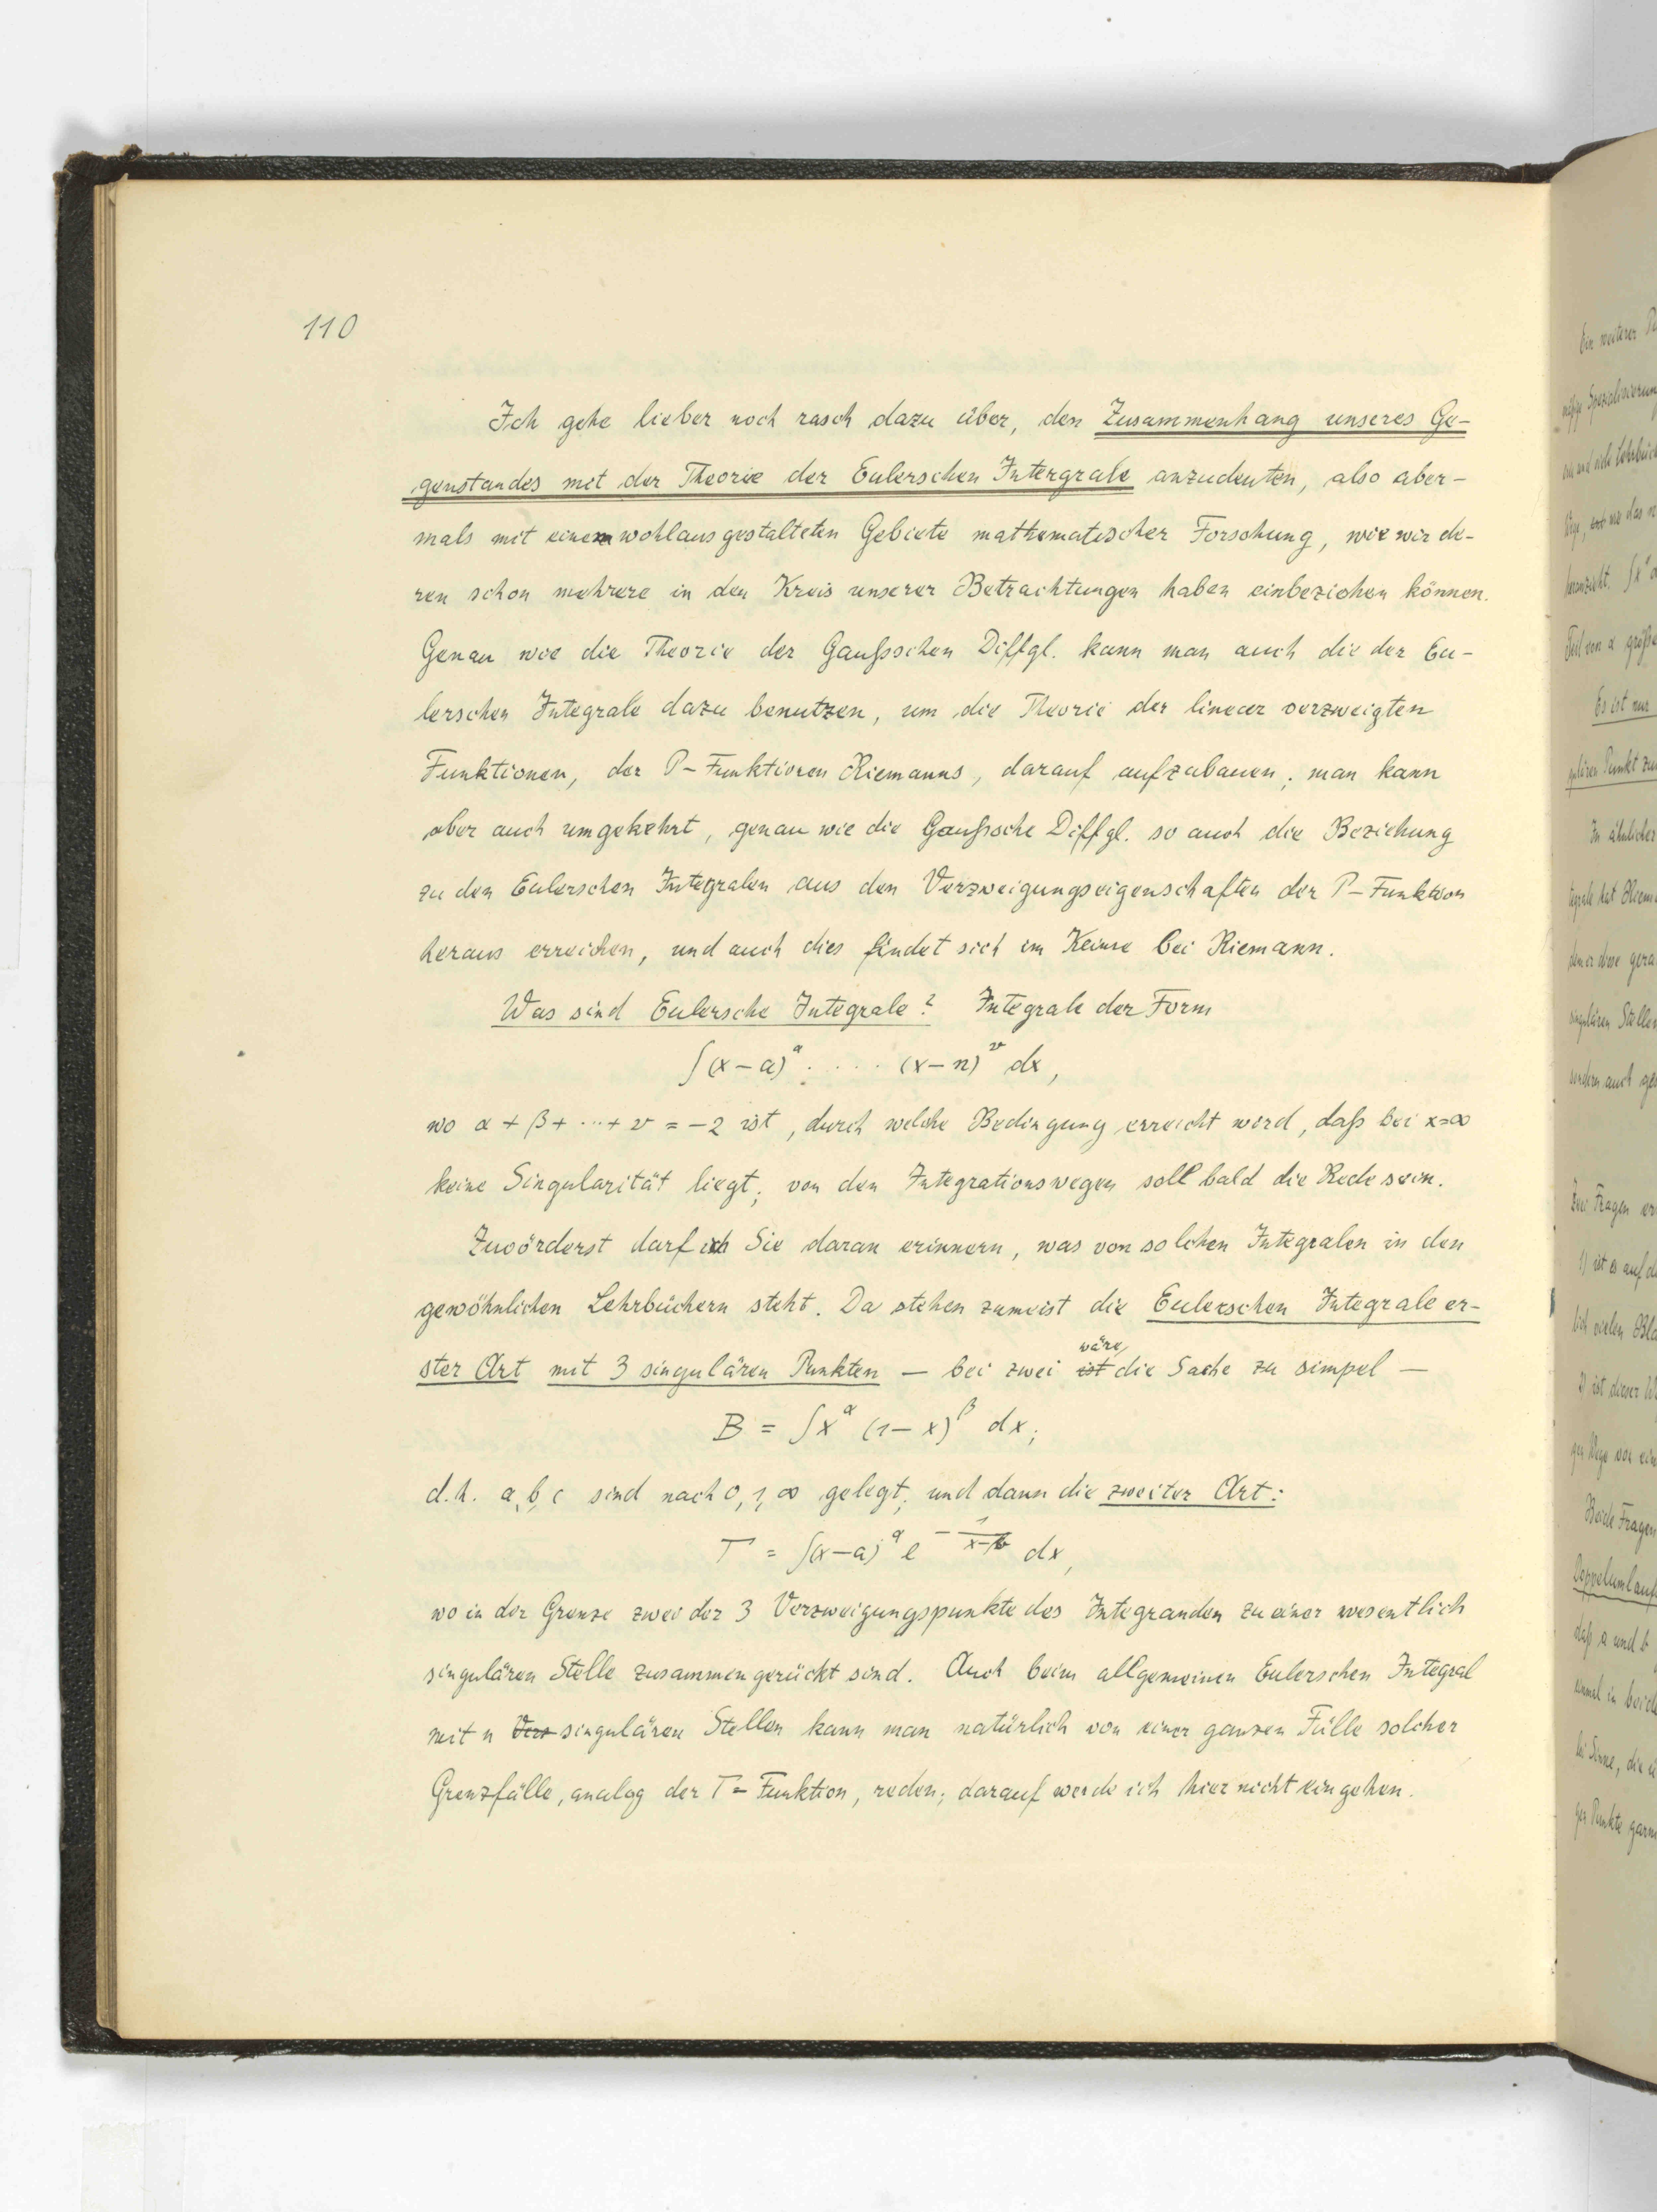 110
Ich gehe lieber noch rasch dazu über, den Zusammenhang unseres Ge-
genstandes mit der Theorie der Eulerschen Intergrale anzudeuten, also aber-
mals mit einem wohlausgestalteten Gebiete mathematischer Forschung, wie wir de-
ren schon mehrere in den Kreis unserer Betrachtungen haben einbeziehen können.
Genau wie die Theorie der Gaußschen Diffgl. kann man auch die der Eu-
lerschen Integrale dazu benutzen, um die Theorie der linear verzweigten
Funktionen, der P-Funktionen Riemanns, darauf aufzubauen; man kann
aber auch umgekehrt, genau wie die Gaußsche Diffgl. so auch die Beziehung
zu den Eulerschen Integralen aus den Verzweigungseigenschaften der P-Funktion
heraus erreichen, und auch dies findet sich im Keime bei Riemann.
Was sind Eulersche Integrale? Integrale der Form
∫(x-a)^α . . . . . (x-n)^ν dx,
wo α + β + ... + ν = -2 ist, durch welche Bedingung erreicht wird, daß bei x=∞
keine Singularität liegt; von den Integrationswegen soll bald die Rede sein.
Zuvörderst darf ich Sie daran erinnern, was von solchen Integralen in den
gewöhnlichen Lehrbüchern steht. Da stehen zumeist die Eulerschen Integrale er-
ster Art mit 3 singulären Punkten — bei zwei ist wäre die Sache zu simpel —
B = ∫x^α (1-x)^β dx;
d.h. a, b, c sind nach 0, 1, ∞ gelegt; und dann die zweiter Art:
Γ = ∫(x-a)^α e^{-1/(x-b)} dx,
wo in der Grenze zwei der 3 Verzweigungspunkte des Integranden zu einer wesentlich
singulären Stelle zusammengerückt sind. Auch beim allgemeinen Eulerschen Integral
mit n singulären Stellen kann man natürlich von einer ganzen Fülle solcher
Grenzfälle, analog der Γ-Funktion, reden; darauf werde ich hier nicht eingehen.